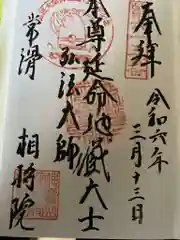 奉拝
令和六年
三月十三日
本尊延命地蔵大士
弘法大師
常滑
相持院